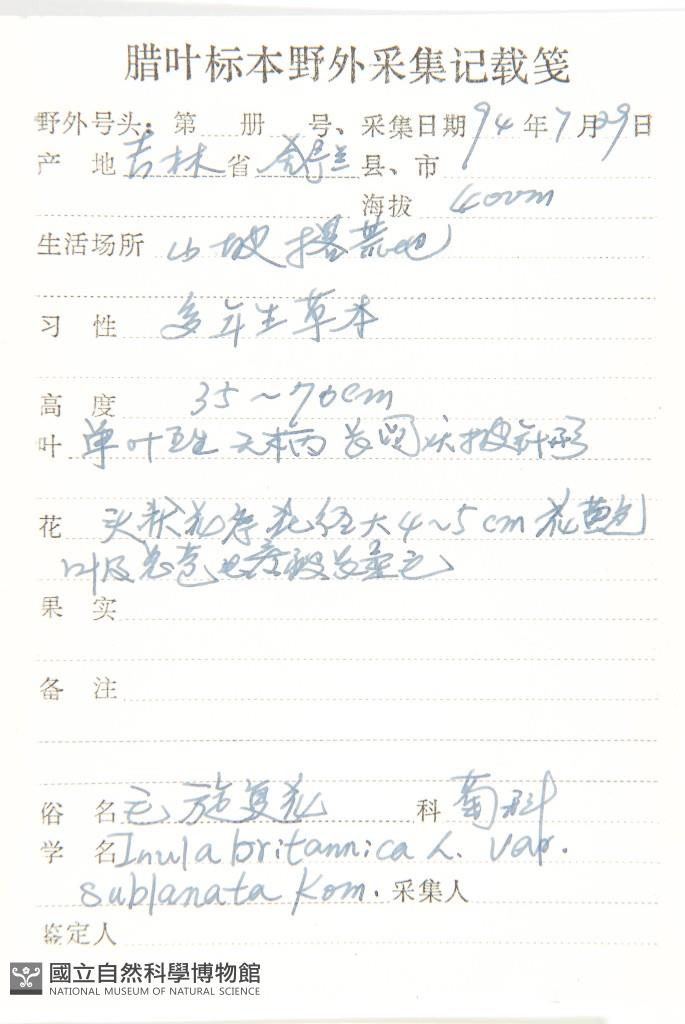 腊叶标本野外采集记载笺
野外号头: 第 册 号、采集日期 94 年 7 月 29 日
产 地 吉林 省 舒兰 县、市
海拔 400m
生活场所 山坡撂荒地
习 性 多年生草本
高 度 35~70cm
叶 单叶互生 无柄 长圆状披针形
花 头状花序 花径大4~5cm 花黄色
叶及总苞
果 实
备 注
俗 名 毛旋复花 科 菊科
学 名 Inula britannica L. var.
sublanata Kom. 采集人
鉴定人
國立自然科學博物館
NATIONAL MUSEUM OF NATURAL SCIENCE